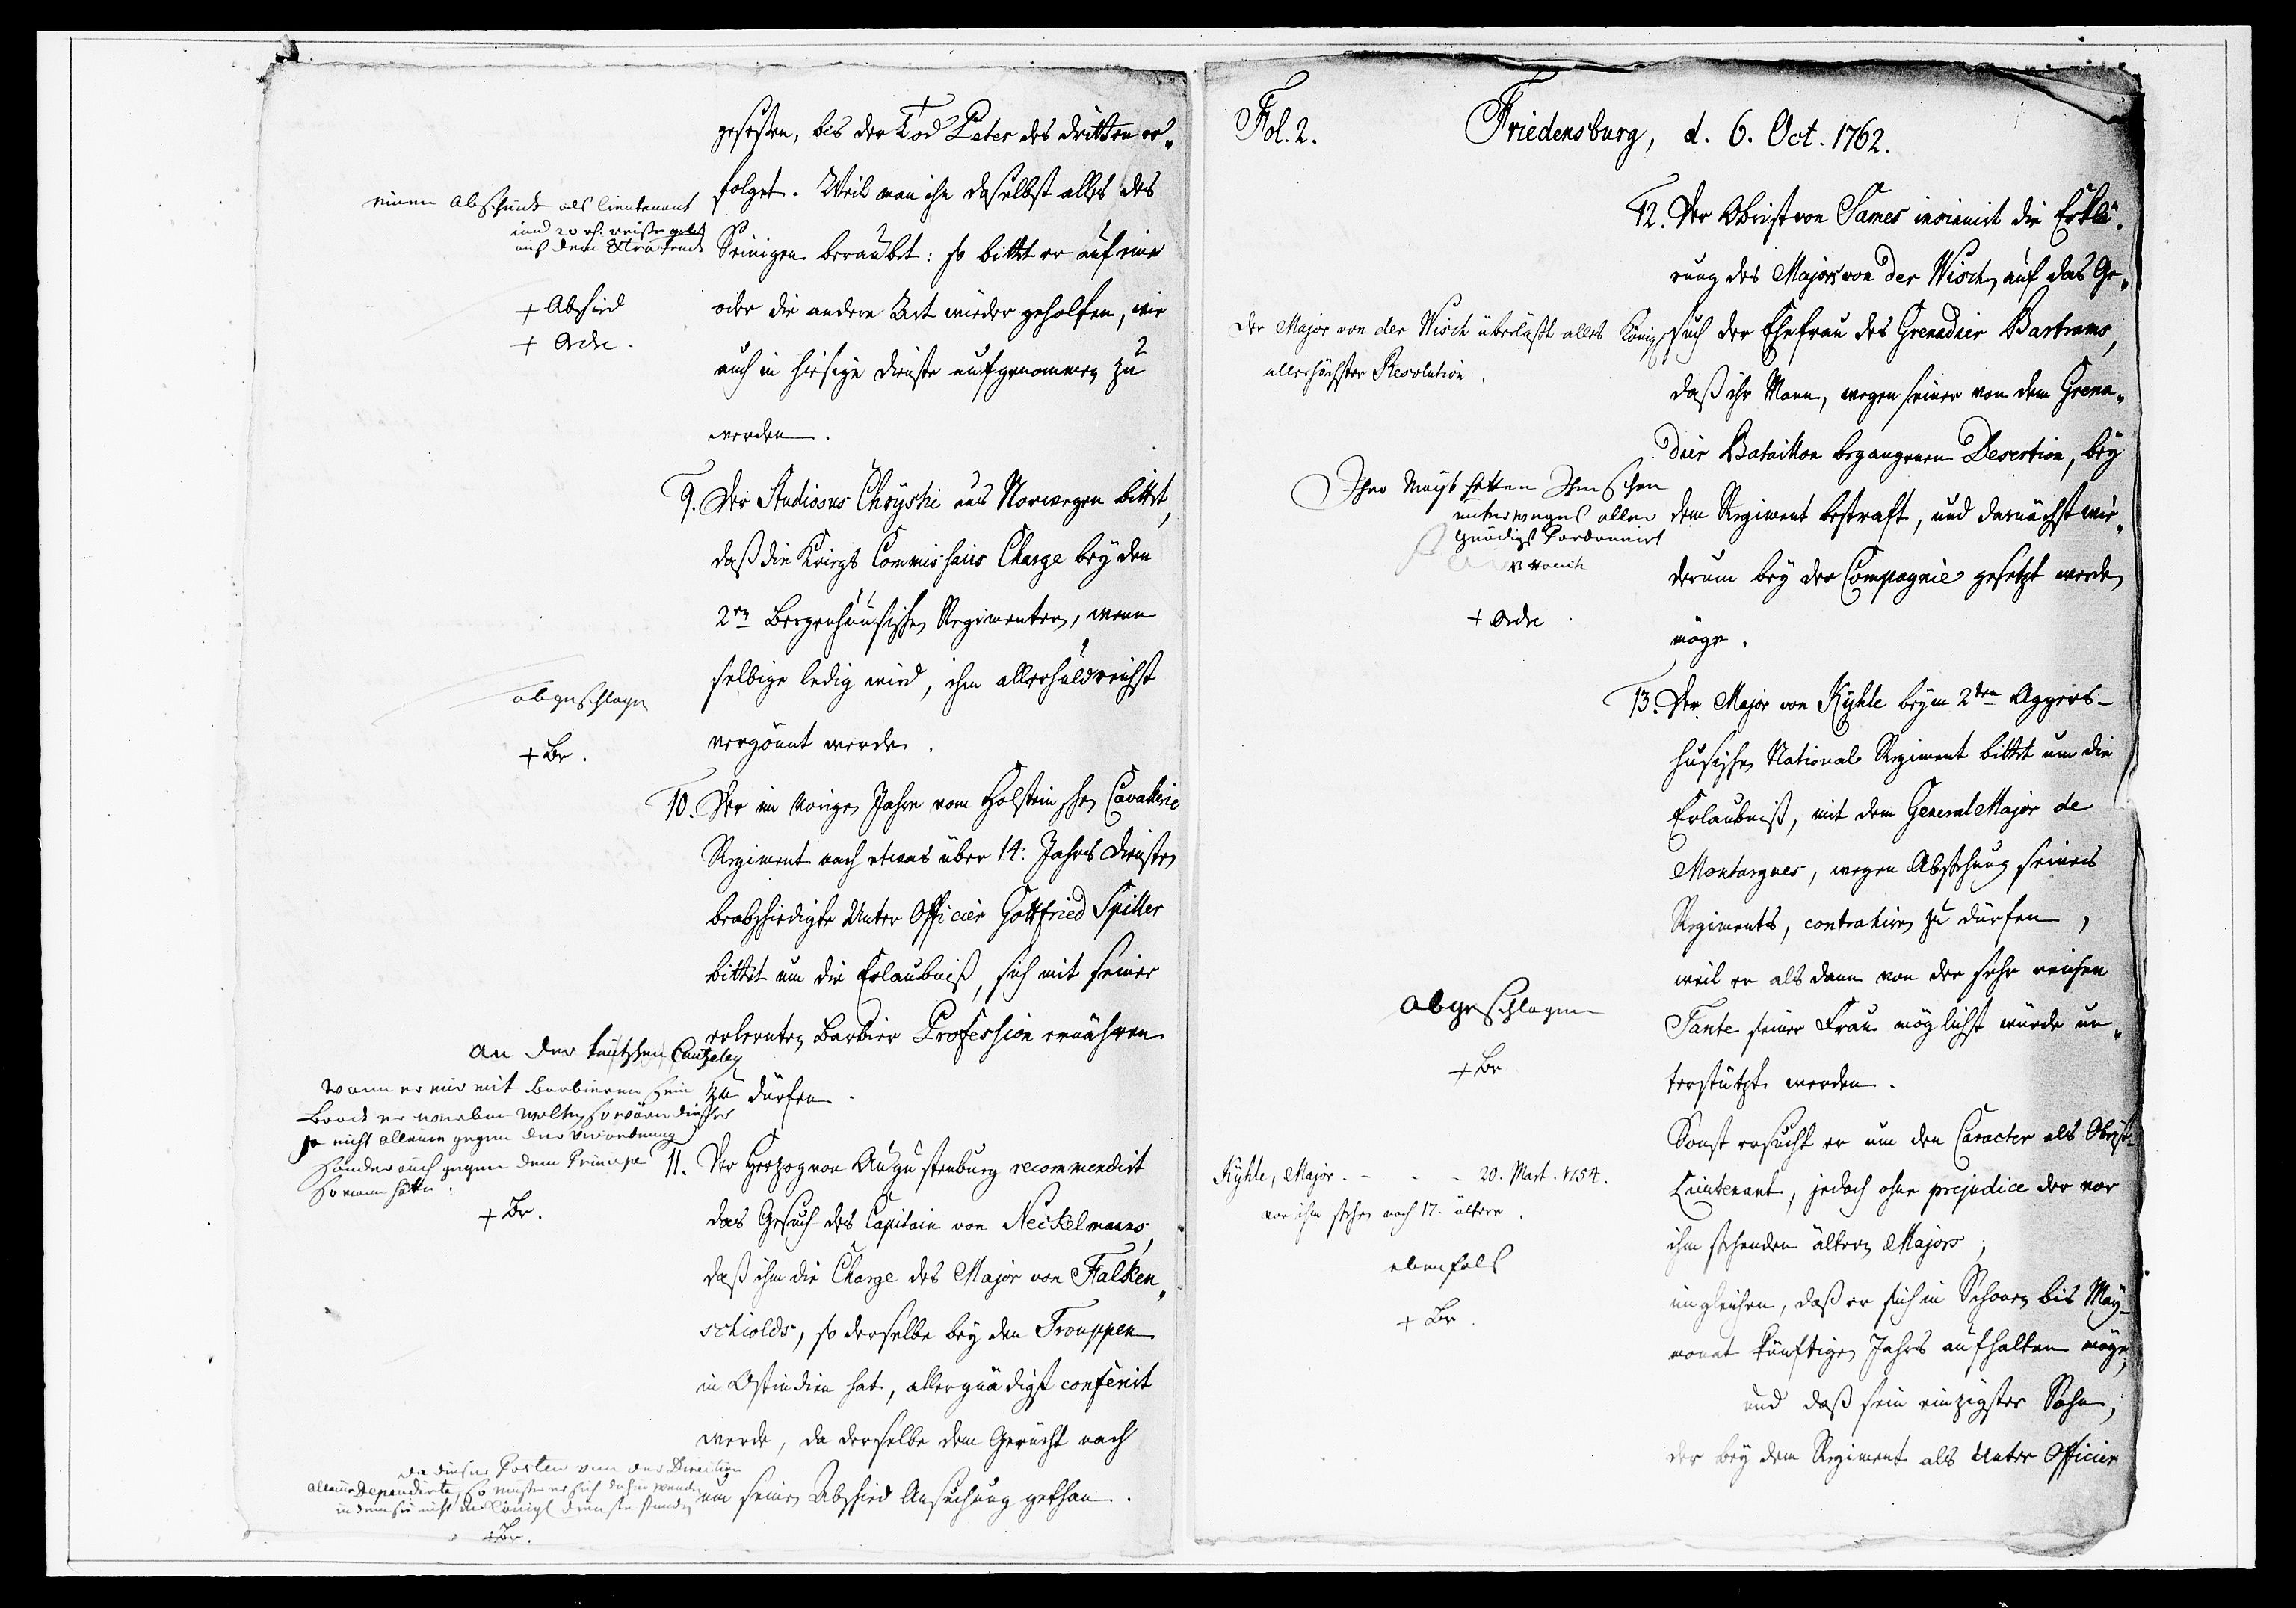 gesessen, bis der Tod Peter des dritten er„
folget. Weil man ihn daselbst alles des
Seinigen beraubet: so bittet er auf eine
oder die andere Art wieder geholfen, wie
auch in hiesige Dienste aufgenommen zu
werden.
einen Abschied als Lieutenant
und 20 rh. reise geld
aus dem Extra fond
+ Abschied
+ Ordre.
9. Der Studiosus Chrÿstie aus Norwegen bittet,
daß die Kriegs Commissairs Charge bey den
2en Bergenhuusischen Regimentern, wenn
selbige ledig wird, ihm allerhuldreichst
vergönnt werde.
abgeschlagen
+ Br.
10. Der im vorigen Jahre vom Holsteinschen Cavallerie
Regiment nach etwas über 14. Jahres Diensten
beabschiedigte Unter Officier Gottfried Spiller
bittet um die Erlaubniß, sich mit seiner
erlernten Barbier Profession ernähren
zu dürfen.
an der teutschen Cantzeley
wann er nur mit barbieren sein
Brodt erwerben wolte, so wäre dieses
ja nicht alleine gegen der Verordnung
sonder auch gegen dem Principe
so man hätte.
+ Br.
11. Der Herzog von Augustenburg recommendirt
das Gesuch des Capitain von Neckelmanns,
daß ihm die Charge des Major von Falken„
schiolds, so derselbe bey den Trouppen
in Ostindien hat, allergnädigst conferirt
werde, da derselbe dem Gerücht nach
um seinen Abschied Ansuchung gethan.
da dieser Posten von der Direction
alleine Dependirte, so müste er sich dahin wenden
in dem sie nicht in Königl Dienste stünden
+ Br.
Fol. 2.
Friedensburg, d. 6. Oct. 1762.
12. Der Obrist von Sames insinuirt die Erklä„
rung des Majors von der Wisch, auf das Ge„
such der Ehefrau des Grenadier Bartrams,
daß ihr Mann, wegen seiner von dem Grena„
dier Bataillon begangenen Desertion, bey
dem Regiment bestraft, und darnächst wie„
derum bey der Compagnie gesetzt werden
möge.
Der Major von der Wisch überläßt alles Königl
allerhöchster Resolution.
Ihro Mayt hetten Ihm schon
unterweges aller
gnädigst Pardonnirt
+ Ordre
13. Der Major von Kÿhle beym 2ten Aggers-
husischen National Regiment bittet um die
Erlaubniß, mit dem General Major de
Montargues, wegen Abstehung seines
Regiments, contrahiren zu dürfen,
weil er als dann von der sehr reichen
Tante seiner Frau möglichst würde un„
terstützt werden.
abgeschlagen
+ Br
Sonst ersucht er um den Caracter als Obrist-
Lieutenant, jedoch ohne prejudice der vor
ihm stehenden ältern Majors;
Kÿhle, Major - - - 20. Mart. 1754.
vor ihm stehen noch 17. ältere.
ebenfals
+ Br.
imgleichen, daß er sich in Schonen bis May-
monat künftigen Jahrs aufhalten möge,
und daß sein einzigster Sohn,
der bey dem Regiment als Unter Officier